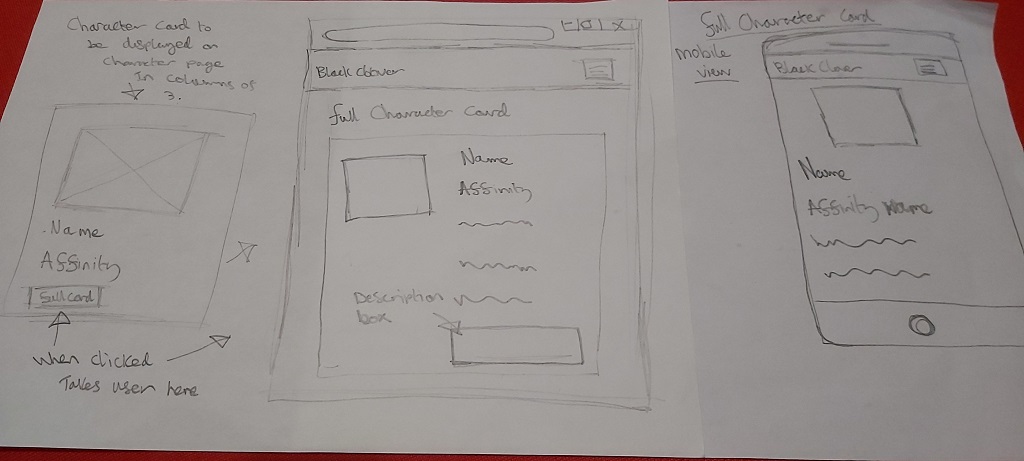 Character Card to
be displayed on
Character page
In columns of
3.
Name
Affinity
full card
When clicked
Takes user here
Black Clover
full Character Card
Name
Affinity
Description
box
full Character Card
mobile
view
Black Clover
Name
Affinity Name